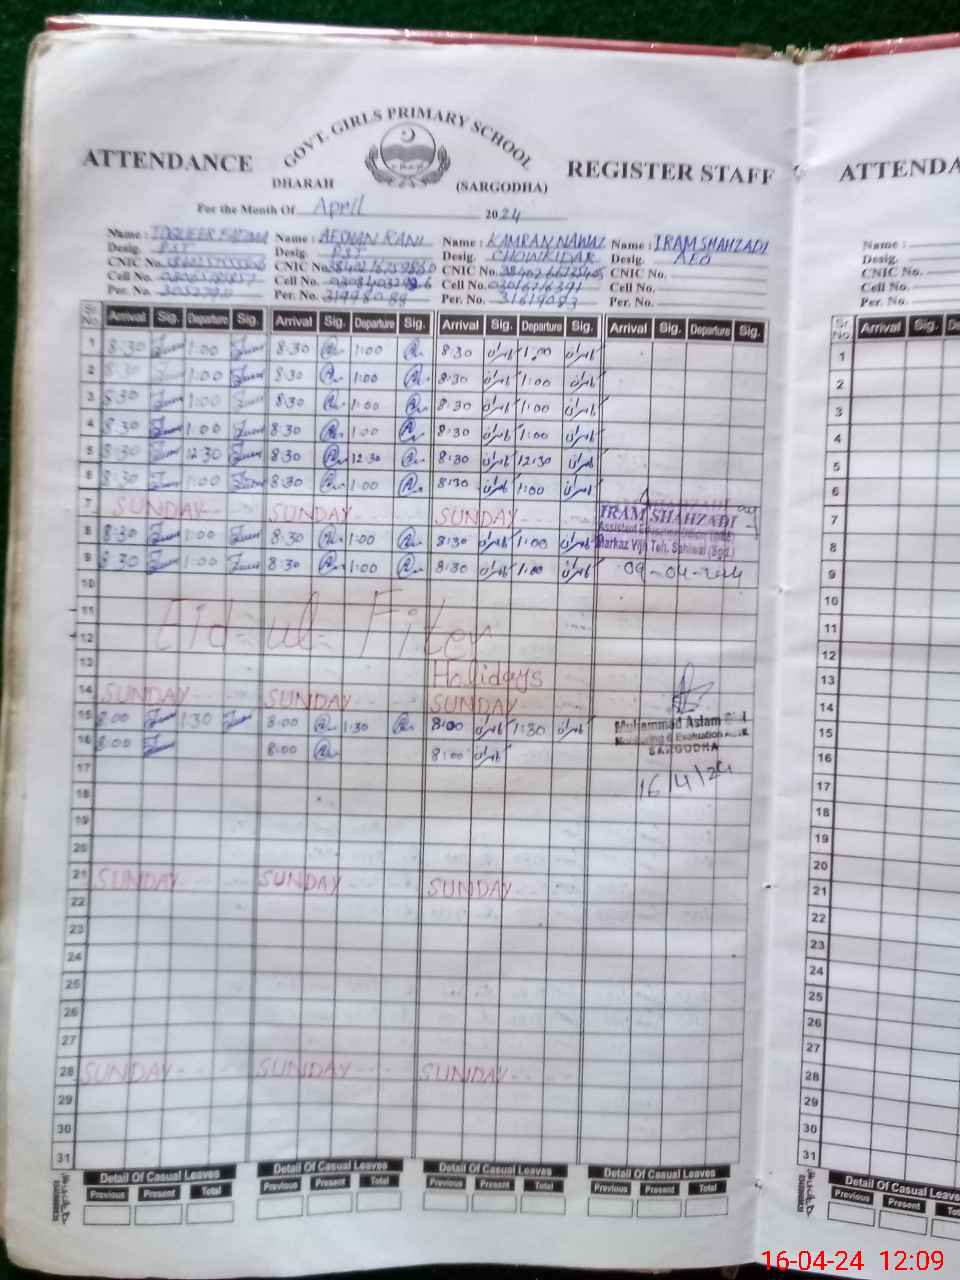 GOVT. GIRLS PRIMARY SCHOOL
ATTENDANCE REGISTER STAFF
DHARAH (SARGODHA)
For the Month Of April 2024
Name : TOQUEER FATIMA Name : AFSHAN RANI Name : KAMRAN NAWAZ Name : IRAM SHAHZADI
Desig. PST Desig. PST Desig. CHOWKIDAR Desig. AEO
CNIC No. CNIC No. CNIC No. CNIC No.
Cell No. Cell No. Cell No. Cell No.
Per. No. Per. No. Per. No. 31619083 Per. No.
Sr. No. Arrival Sig. Departure Sig. Arrival Sig. Departure Sig. Arrival Sig. Departure Sig. Arrival Sig. Departure Sig.
1 8:30 1:00 8:30 1:00 8:30 کامران 1:00 کامران
2 8:30 1:00 8:30 1:00 8:30 کامران 1:00 کامران
3 8:30 1:00 8:30 1:00 8:30 کامران 1:00 کامران
4 8:30 1:00 8:30 1:00 8:30 کامران 1:00 کامران
5 8:30 12:30 8:30 12:30 8:30 کامران 12:30 کامران
6 8:30 1:00 8:30 1:00 8:30 کامران 1:00 کامران
7 SUNDAY SUNDAY SUNDAY IRAM SHAHZADI
8 8:30 1:00 8:30 1:00 8:30 کامران 1:00 کامران Markaz Teh. Sahiwal (Sgd.)
9 8:30 1:00 8:30 1:00 8:30 کامران 1:00 کامران 09-04-2024
10
11 Eid-ul-Fiter
12
13 Holidays
14 SUNDAY SUNDAY SUNDAY
15 8:00 1:30 8:00 1:30 8:00 کامران 1:30 کامران Muhammad Aslam
Monitoring & Evaluation
16 8:00 8:00 8:00 کامران SARGODHA
17 16/4/24
18
19
20
21 SUNDAY SUNDAY SUNDAY
22
23
24
25
26
27
28 SUNDAY SUNDAY SUNDAY
29
30
31
Detail Of Casual Leaves Detail Of Casual Leaves Detail Of Casual Leaves Detail Of Casual Leaves
Previous Present Total Previous Present Total Previous Present Total Previous Present Total
ATTENDA
Name :
Desig.
CNIC No.
Cell No.
Per. No.
Sr. No. Arrival Sig.
1
2
3
4
5
6
7
8
9
10
11
12
13
14
15
16
17
18
19
20
21
22
23
24
25
26
27
28
29
30
31
Detail Of Casual Leaves
Previous Present
16-04-24 12:09